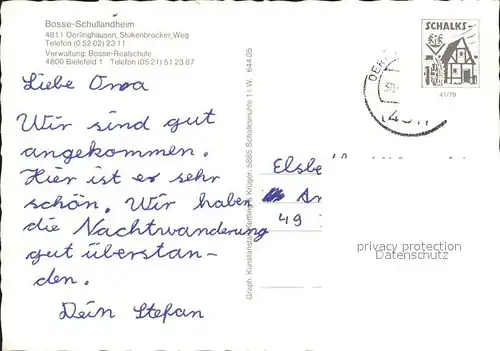 Bosse-Schullandheim
4811 Oerlinghausen, Stukenbrocker Weg
Telefon (0 52 02) 23 11
Verwaltung: Bosse-Realschule
4800 Bielefeld 1 Telefon (05 21) 51 23 87
Liebe Oma
Wir sind gut
angekommen.
Hier ist es sehr
schön. Wir haben
die Nachtwanderung
gut überstan-
den.
Dein Stefan
Krüger, 5885 Schalksmühle 1 i.W. 644 05
SCHALKS-
41/79
Elsbe
49
privacy protection
DELCAMPE